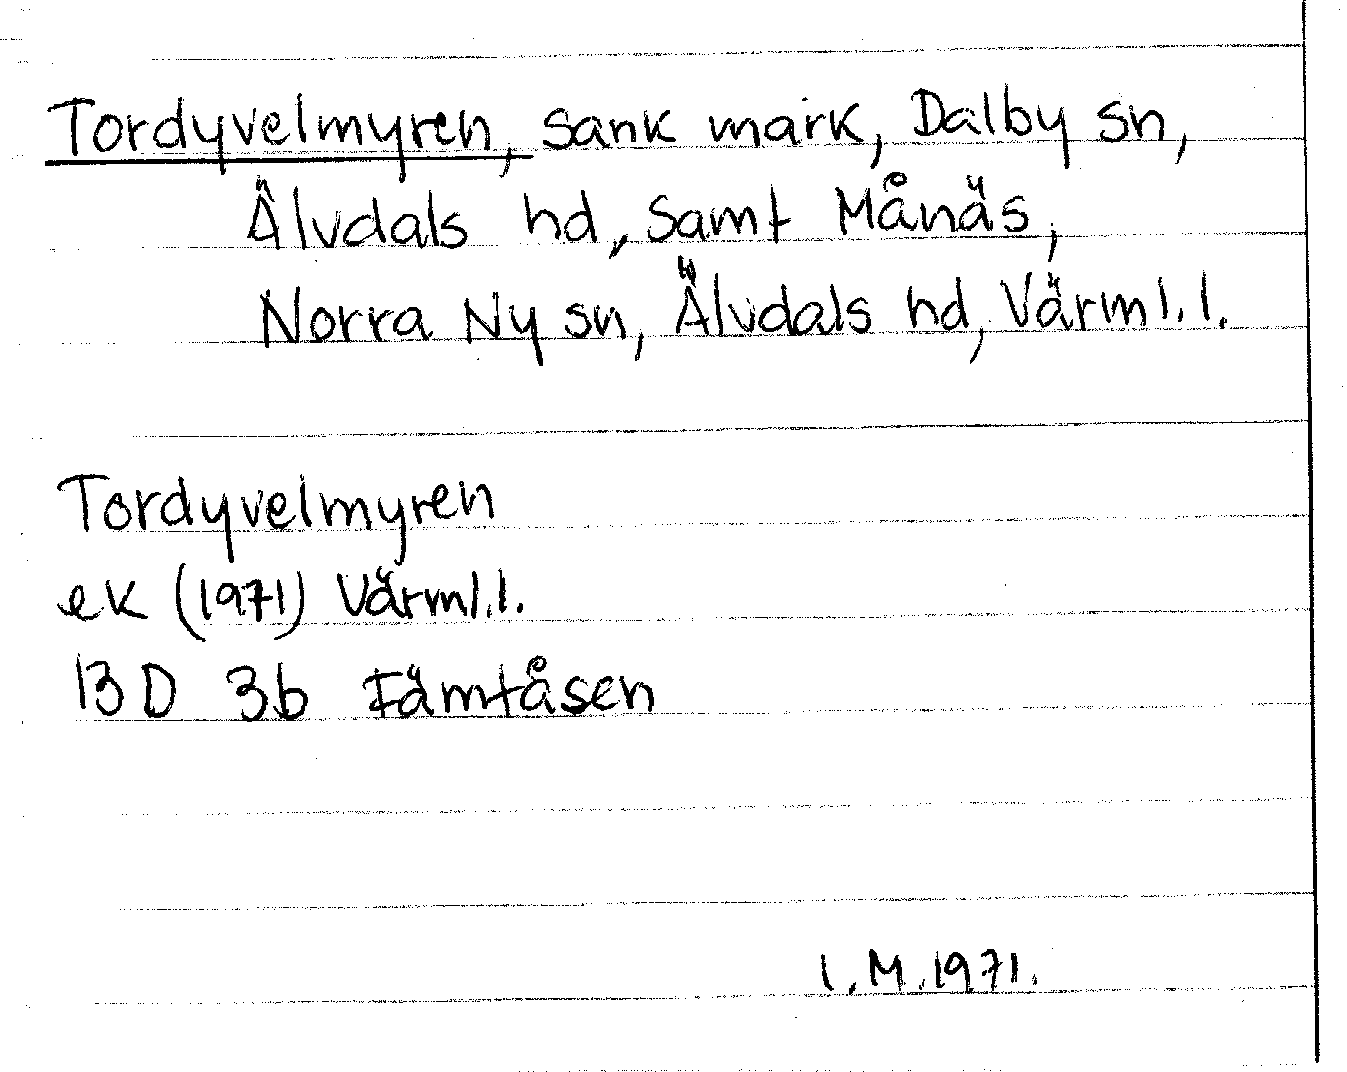 Tordyvelmyren, sank mark, Dalby sn,
Älvdals hd, samt Månäs,
Norra Ny sn, Älvdals hd, Värml. l.
Tordyvelmyren
ek (1971) Värml. l.
13D 3b Fämtåsen
I. M. 1971.